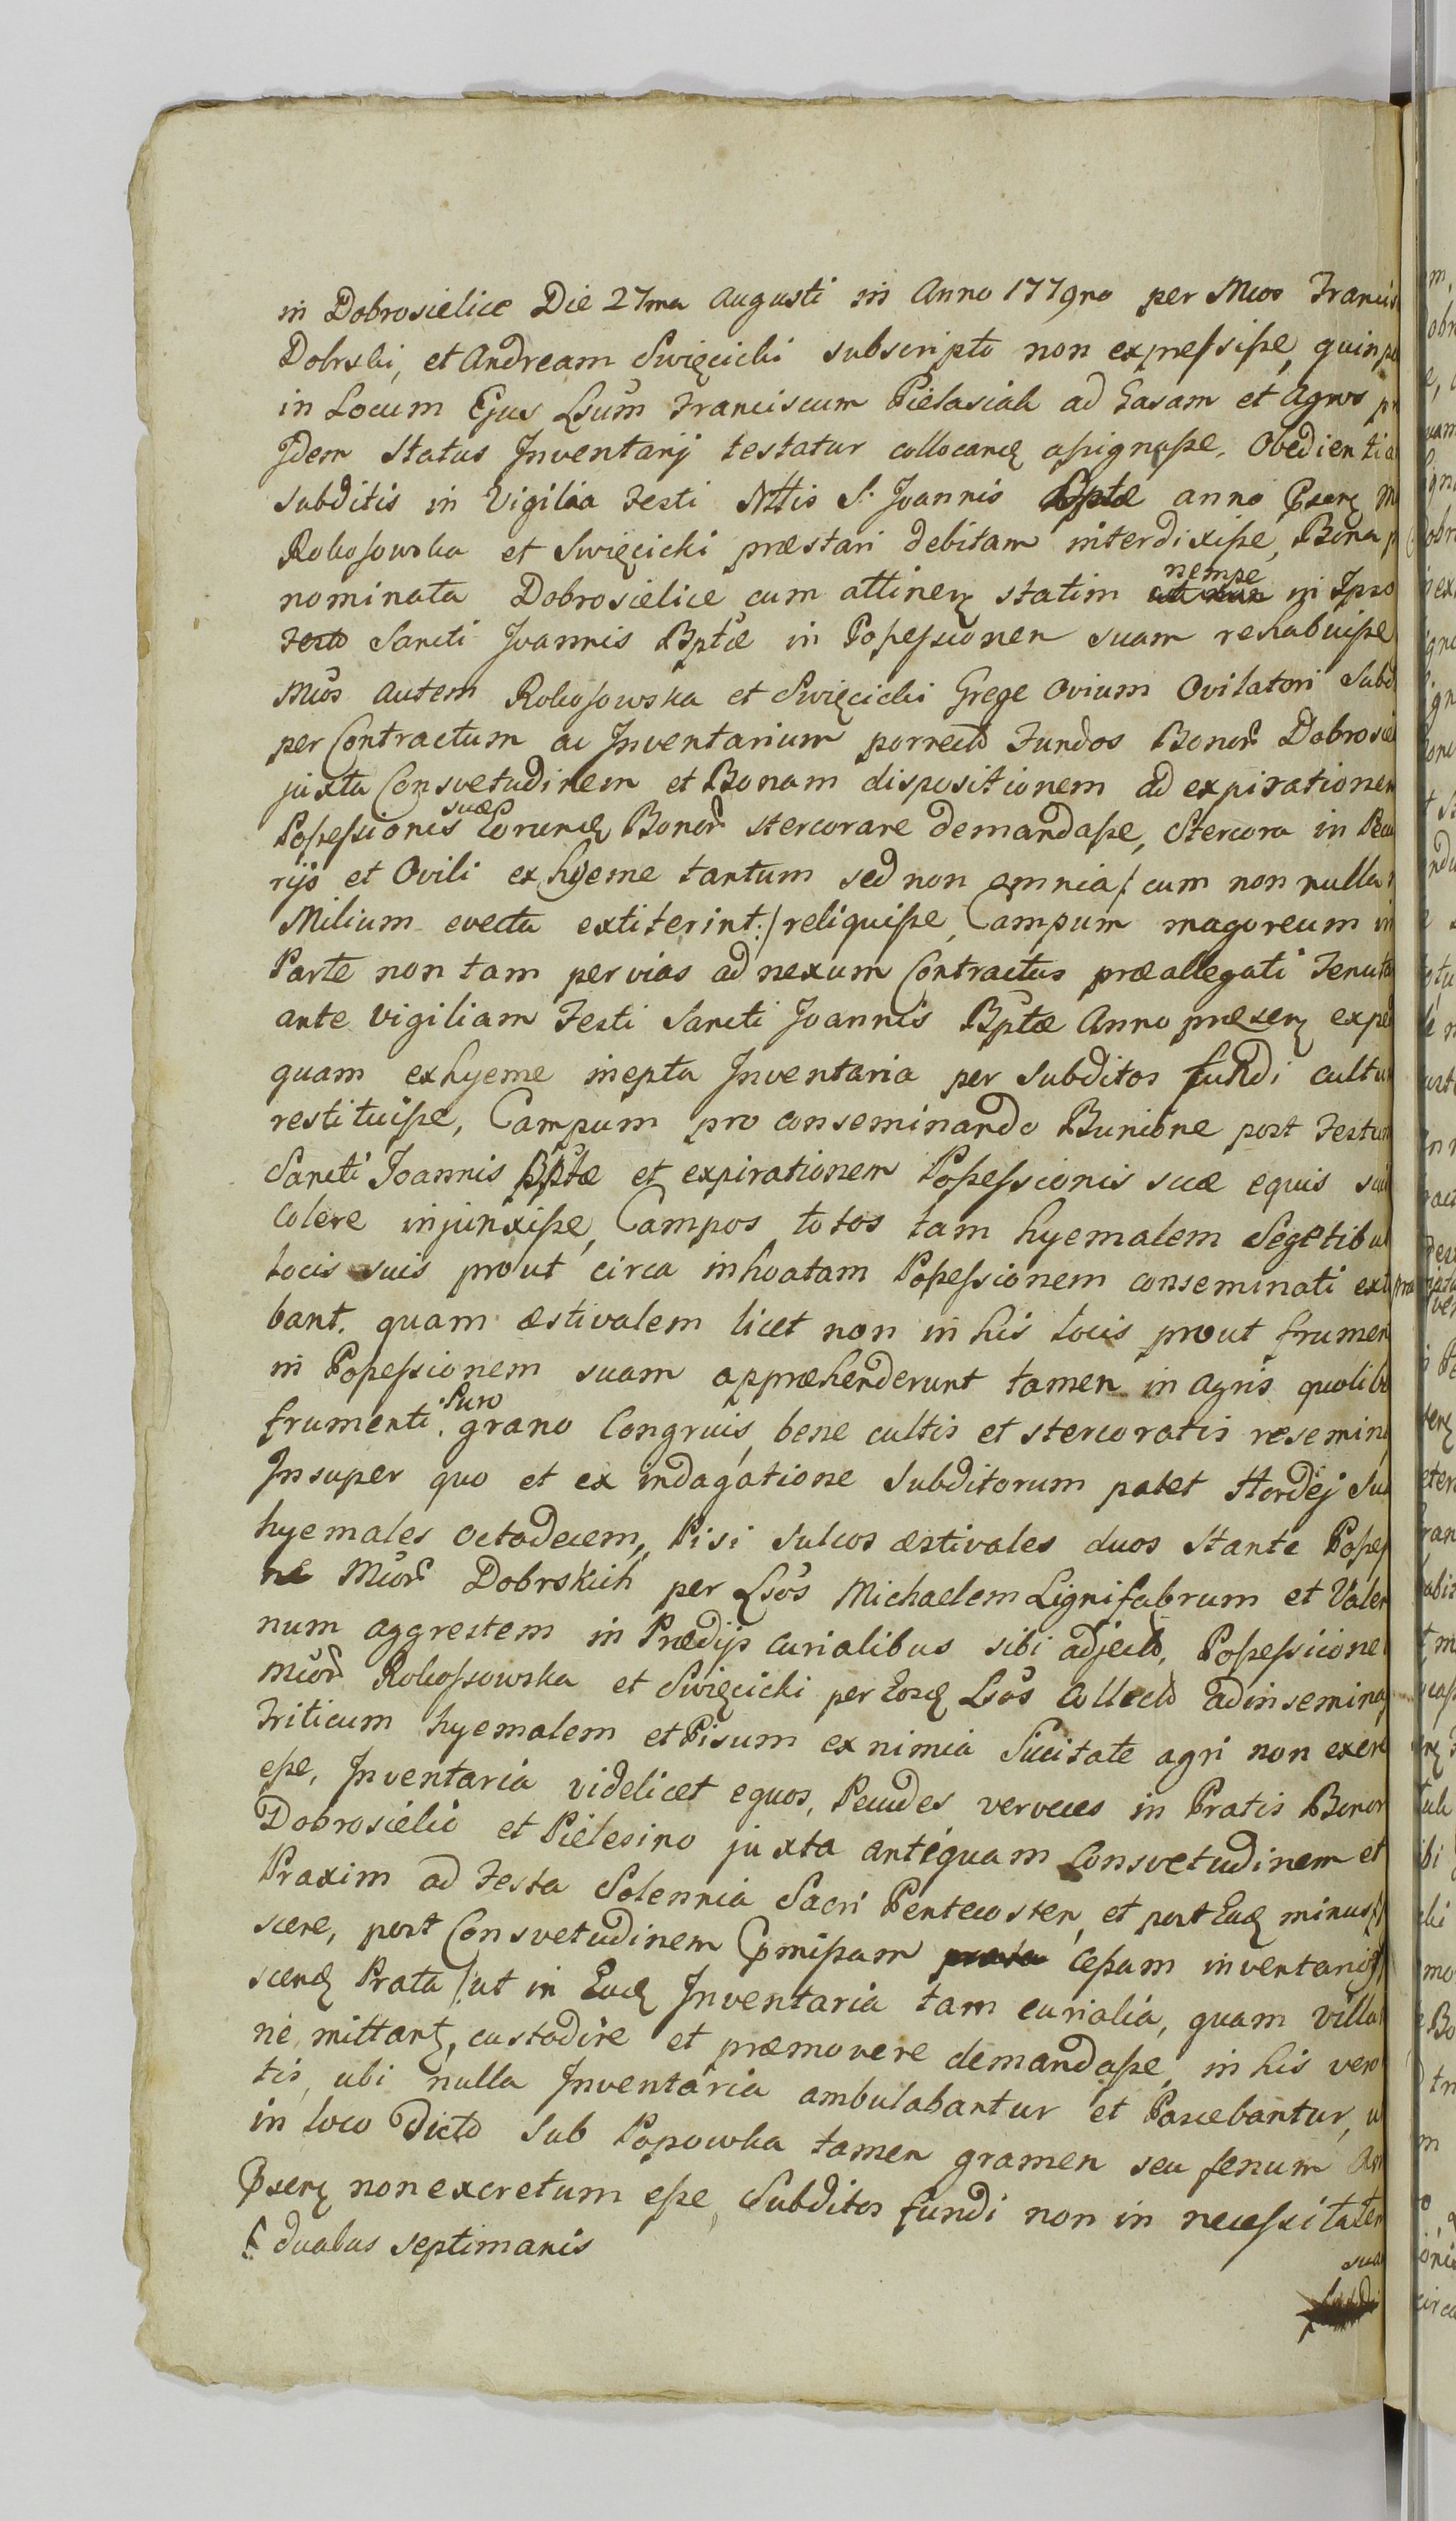 in Dobrosielice Die 27ma Augusti in Anno 1779no per Mcos Francis
Dobrski, et Andream Swięcicki subscripto non expressisse, quin
in Locum Ejus Lsum Franciscum Pielasiak ad Casam et Agros
Idem Status Inventarij testatur collocandq assignasse. Obedientia
subditis in Vigilia Festi Nttis S. Joannis Bptæ anno Pserq
Rokossowska et Swięcicki præstari debitam interdixisse, Bona
nominata Dobrosielice cum attinenq statim nempe in Ipso
Festo Sancti Joannis Bptæ in Possessionem suam rehabuisse
Mcos autem Rokossowska et Swięcicki Grege Ovium Ovilatori Subd
per Contractum ac Inventarium porrecto Fundos Bonor Dobrosie
juxta Consvetudinem et Bonam dispositionem ad expirationem
Possessionis suæ Bonor stercorare demandasse, Stercora in Pecu
rijs et Ovili ex hyeme tantum sed non omnia /: cum non nulla
Milium evecta extiterint :/ reliquisse, Campum magoreum in
Parte non tam per vias ad nexum Contractus præallegati Tenuta
ante Vigiliam Festi Sancti Joannis Bptæ Anno præsenq exped
quam ex hyeme inepta Inventaria per Subditos fundi cultu
restituisse, Campum pro conseminando Bunione post Festum
Sancti Joannis Bptæ et expirationem Possessionis suæ equis sui
colere injunxisse, Campos totos tam hyemalem Segetibus
locis suis prout circa inhoatam Possessionem conseminati exti
bant. quam æstivalem licet non in his locis prout frumen
in Possessionem suam appræhenderunt tamen in agris quolibe
frumenti Puro grano Congruis, bene cultis et stercoratis resemina
Insuper quo et ex indagatione Subditorum patet Hordej
hyemales octodecem, Pisi Sulcos æstivales duos Stante Posses
ne Mcor Dobrskich per Lsos Michaelem Lignifabrum et Valen
num aggrestem in Prædijs curialibus sibi adjecto, Possessione
Mcor Rokossowska et Swięcicki per Eosdq Lsos Collecto adinsemina
Triticum hyemalem et Pisum ex nimia Siccitate agri non excre
esse, Inventaria videlicet equos, Pecudes verveces in Pratis Bonor
Dobrosielic et Pielesino juxta antiquam Consvetudinem et
Praxim ad Festa Solennia Sacri Pentecosten, et post Eadq minus
scere, post Consvetudinem præmissam cessam inventarij
scendq Prata /: ut in Eadq Inventaria tam curialia, quam villa
ne mittantq, custodire et præmovere demandasse, in his vero
tis, ubi nulla Inventaria ambulabantur et Pascebantur,
in loco Dicto Sub Popowka tamen gramen seu fenum
Pserq non excretum esse, Subditos fundi non in necessitatem
duabus septimanis
sua